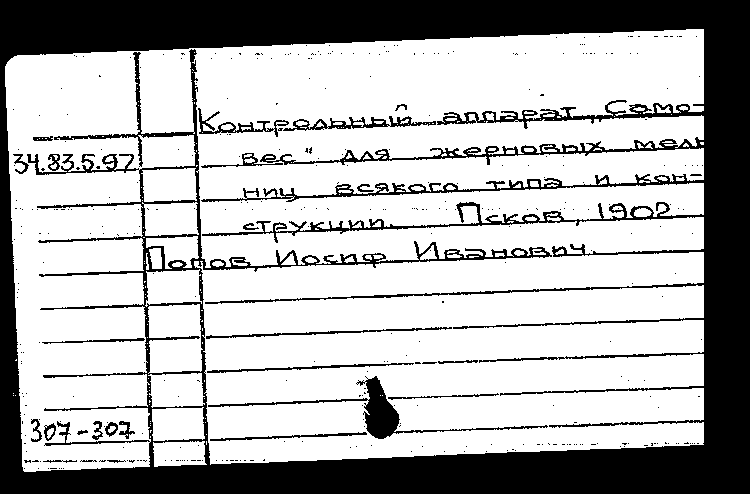 Контрольный аппарат „Само-
34.83.5.97 вес" для жерновых мель
ниц всякого типа и кон-
струкции. Псков, 1902
Попов, Иосиф Иванович.
307-307